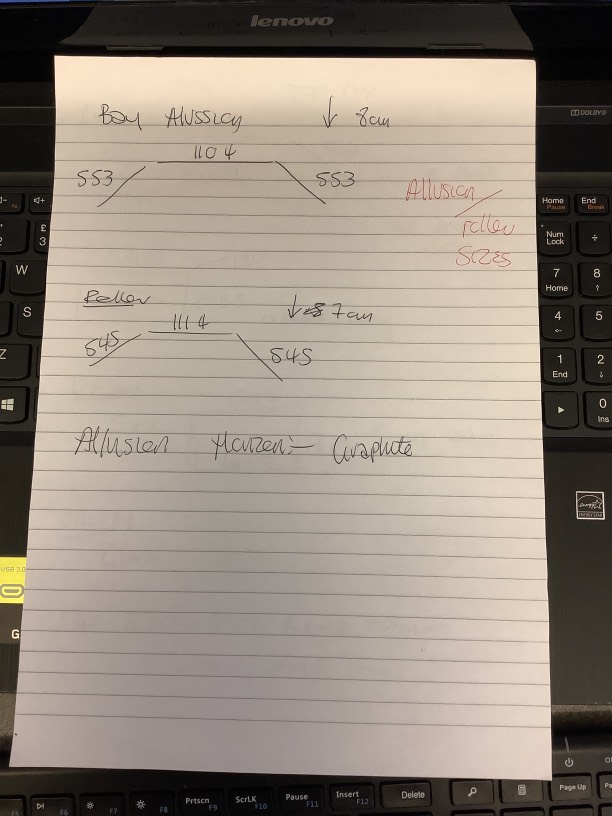 lenovo
DOLBY
Bay Alussion ↓ 8cm
1104
553 553
Allusion /
roller
sizes
Roller ↓ 7cm
1114
545 545
Allusion Manzen:- Graphite
Home
Pause
End
Break
Num
Lock
÷
7
Home
8
4
5
1
End
2
0
Ins
£
3
2
W
S
Z
ENERGY STAR
USB 3.0
G
F6
F7
F8
Prtscn
F9
ScrLK
F10
Pause
F11
Insert
F12
Delete
Page Up